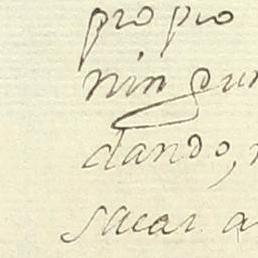 propio
ningun
dando,
sacar a